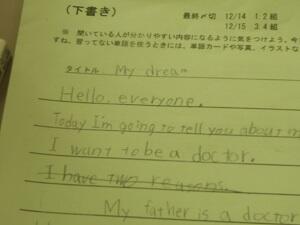 (下書き)
最終〆切 12/14 1.2組
12/15 3.4組
※ 聞いている人が分かりやすい内容になるように気をつけよう。今
すね。習ってない単語を使うときには、単語カードや写真、イラストな
タイトル My dream
Hello, everyone.
Today I'm going to tell you about m
I want to be a doctor.
I have two reasons.
My father is a doctor